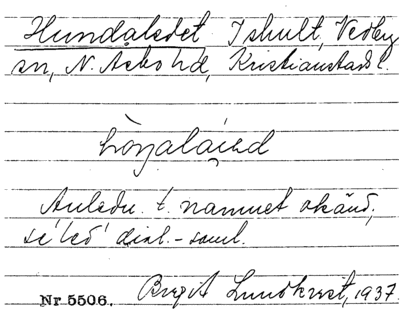 Hundaledet Ishult, Vedby
sn, N. Åsbo hd, Kristianstads l.
Anledn. t. namnet okänd,
se 'led' dial.-saml.
Birgit Lundkvist, 1937.
Nr 5506.